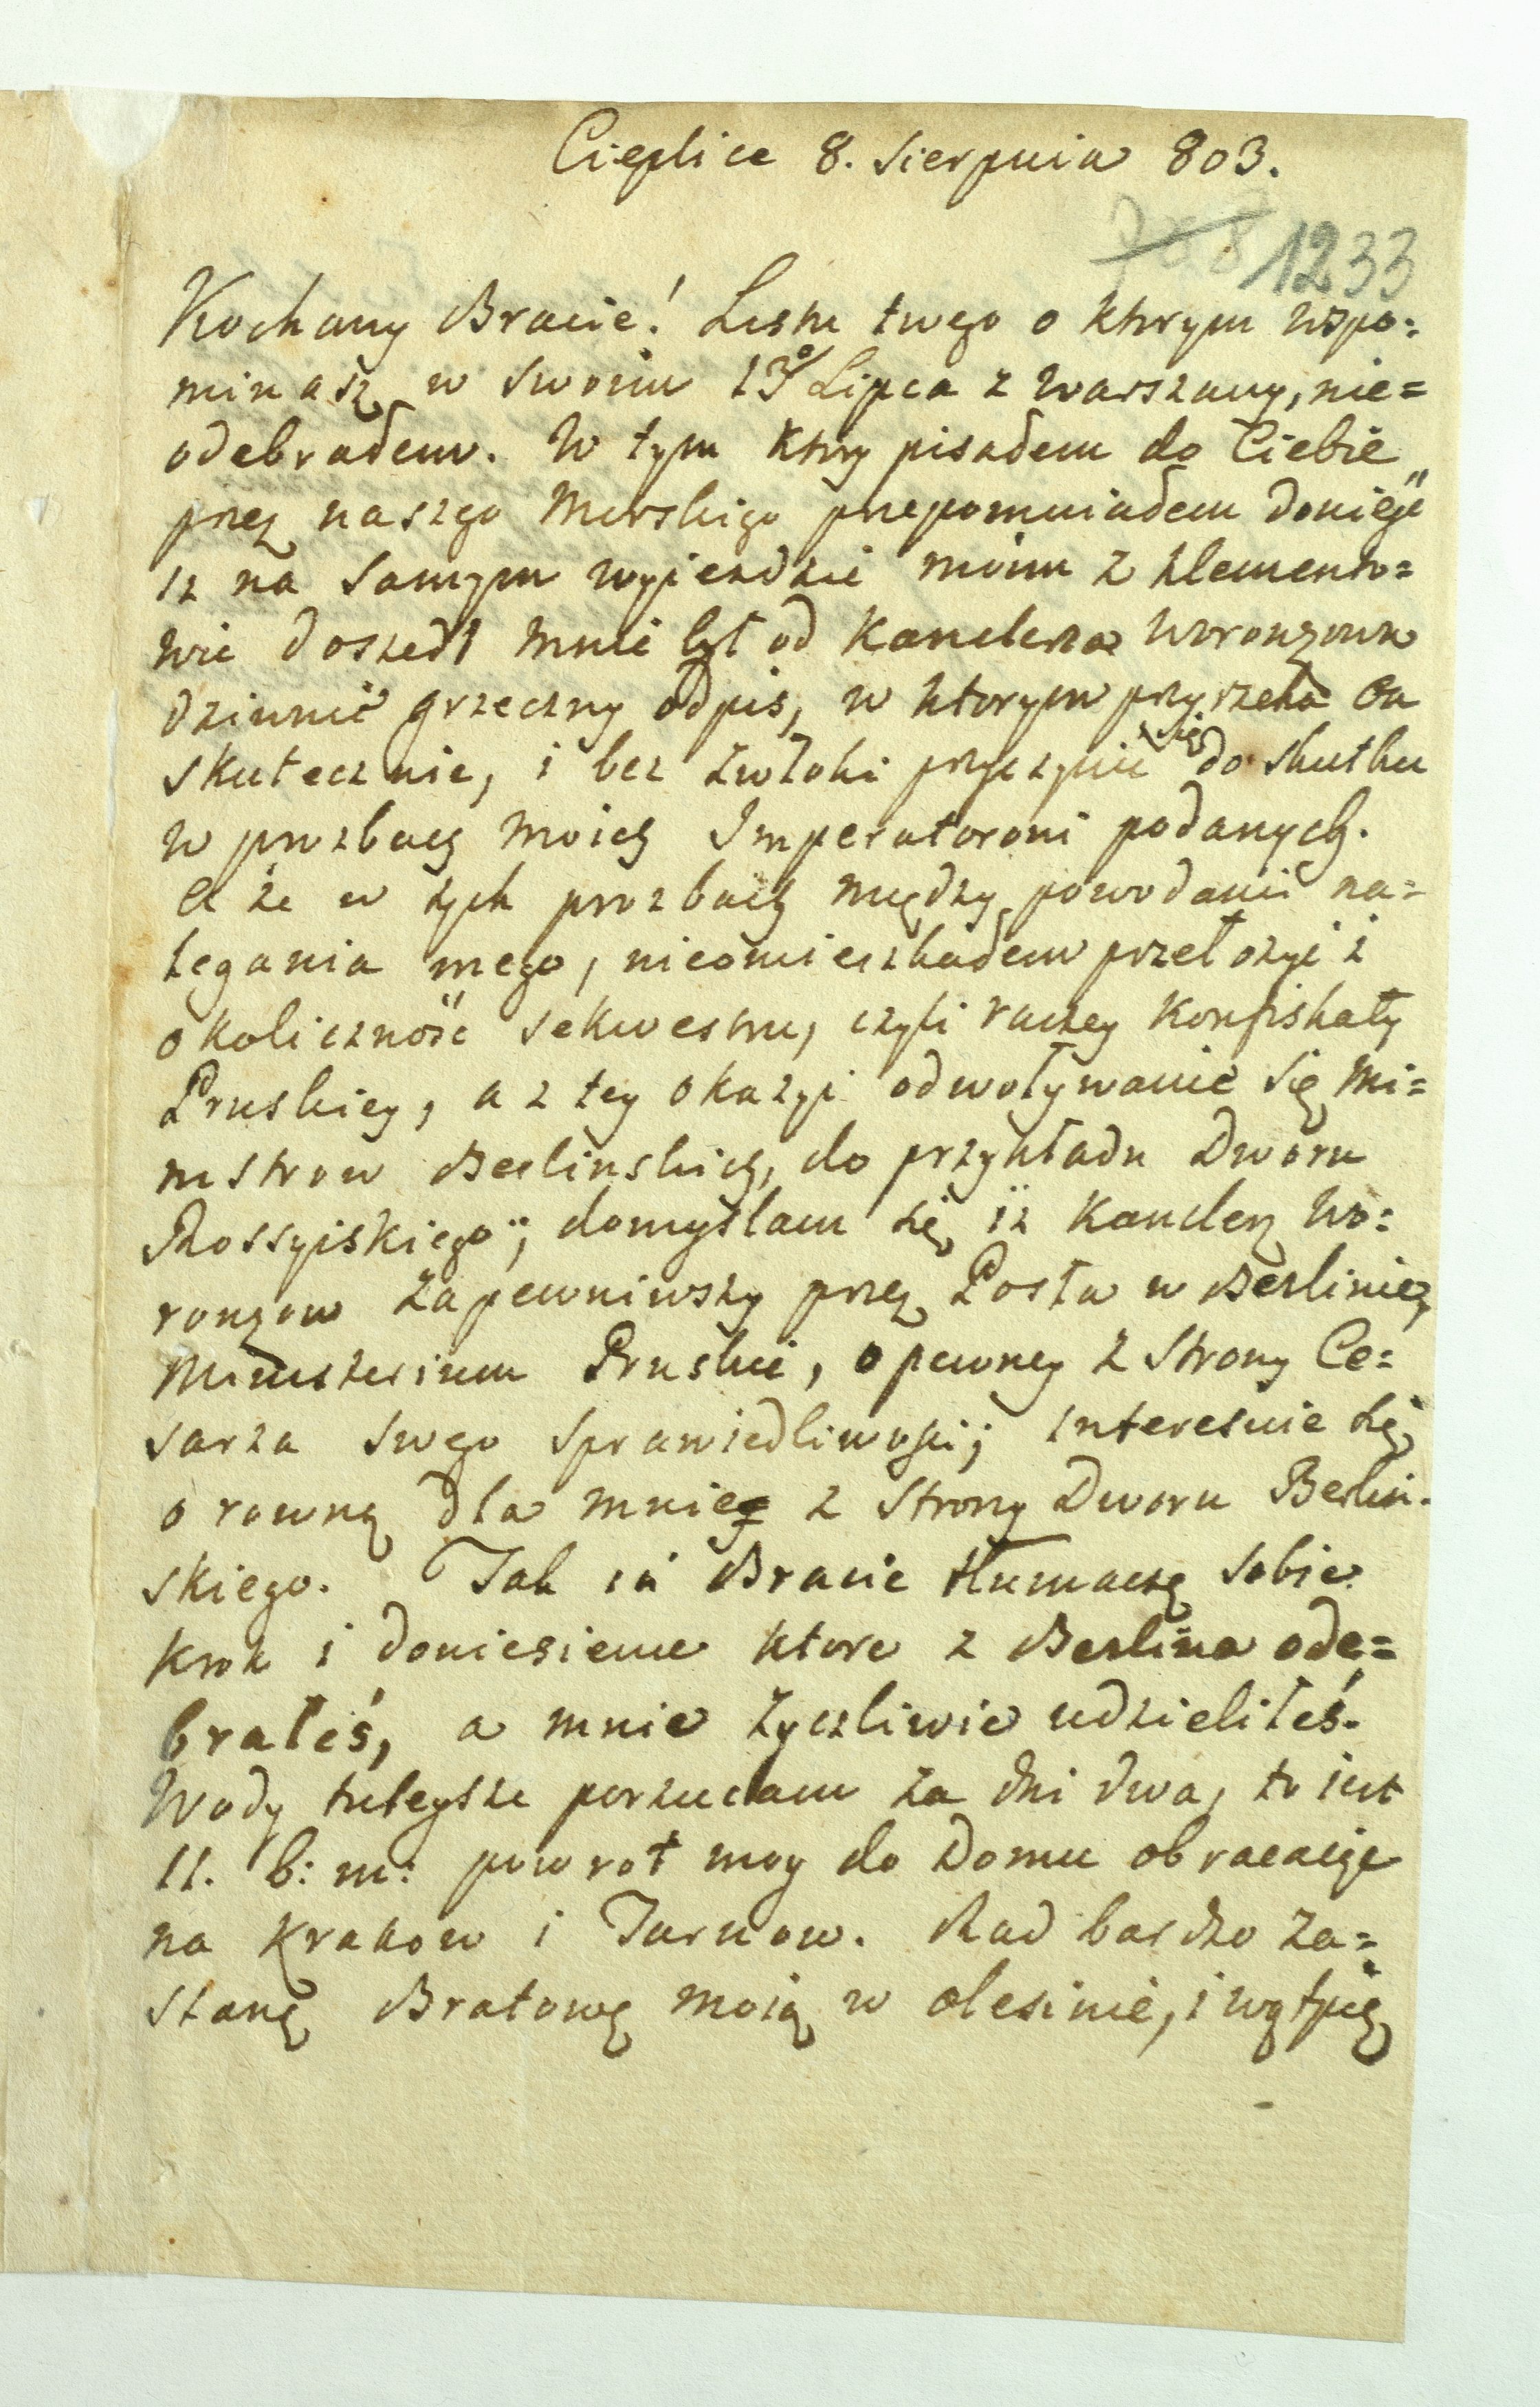 Cieplice 8. Sierpnia 803.
1233
Kochany Bracie! Listu twego o ktorym wspo=
minasz w swoim 13º Lipca z Warszawy, nie=
odebrałem. W tym ktory pisałem do Ciebie
przez naszego Morskiego przepomniałem donieść
iz na samym wyiezdzie moim z Klemento=
wic doszedł mnie był od Kanclerza Woronzowa
dziwnie grzeczny odpis, w ktorym przyrzeka On
skutecznie, i bez zwłoki przyczynić się do skutku
w prozbach moich Imperatorowi podanych.
A że w tych prozbach między powodami na=
legania mego, nieomieszkałem przełożyć i
okoliczność sekwestru, czyli raczey konfiskaty
Pruskiey, a z tey okazyi odwoływanie się Mi=
nistrow Berlinskich, do przykładu Dworu
Rossyiskiego; domyslam się iż Kanclerz Wo=
ronzow zapewniwszy przez Posła w Berlinie,
Ministerium Pruskie, o pewney z strony Ce=
sarza swego sprawiedliwości; interesuie się
o rowną dla mnie z strony Dworu Berlin=
skiego. Tak ia Bracie tłumaczę sobie
krok i doniesienie ktore z Berlina ode=
brałeś, a mnie życzliwie udzieliłeś.
Wody tuteysze porzucam za dni dwa, to iest
11. b: m: powrot moy do Domu obracaiąc
na Krakow i Tarnow. Rad bardzo za=
stanę Bratowę moią w Olesinie, i wątpię